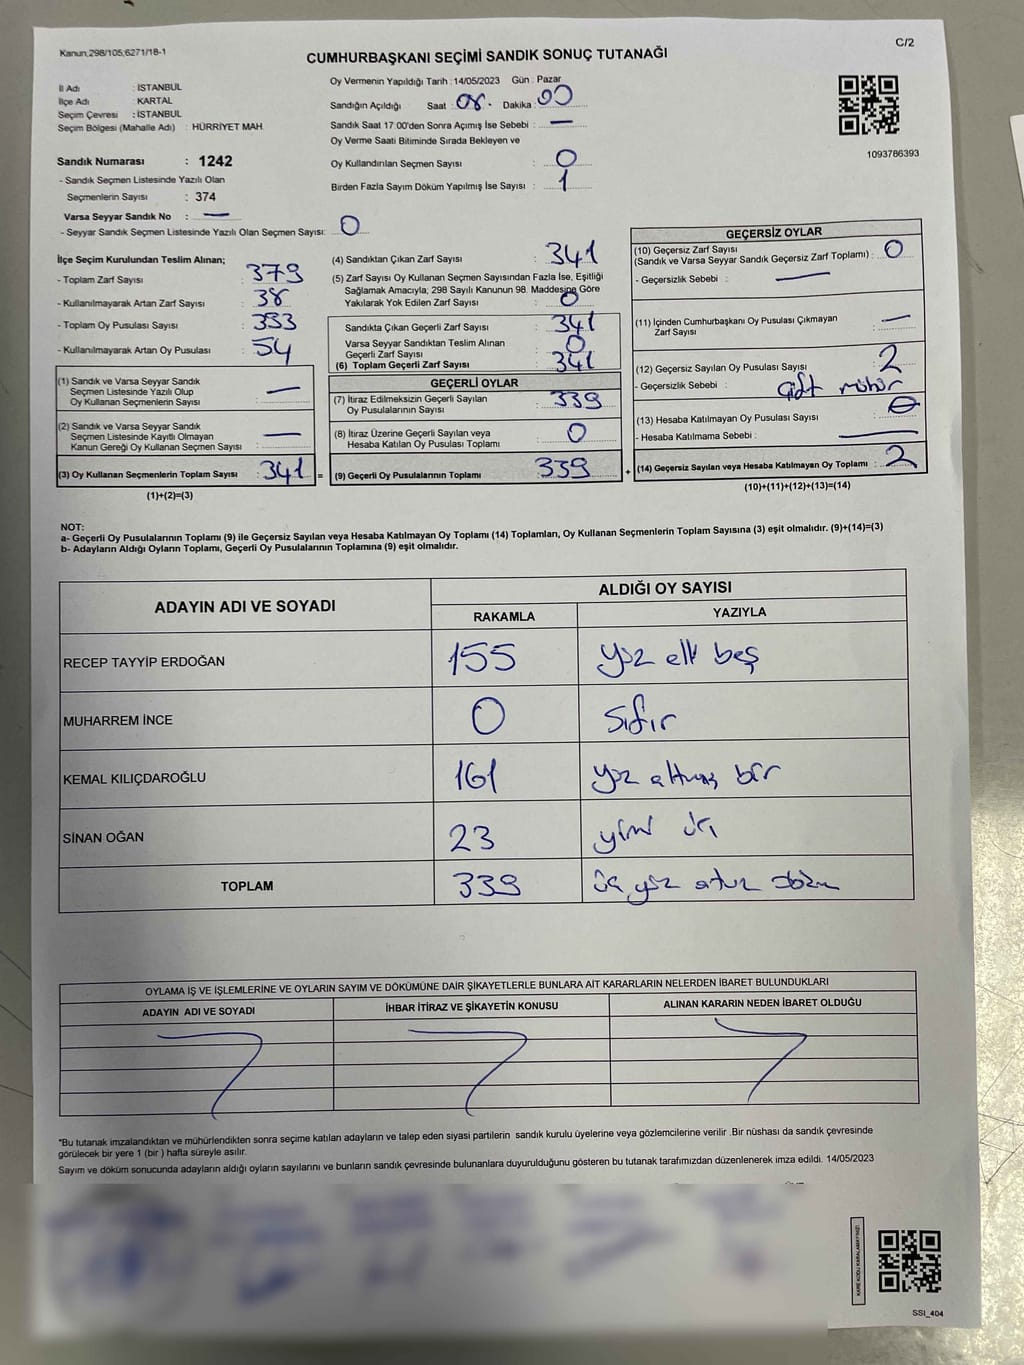 Kanun;298/105;6271/18-1
C/2
CUMHURBAŞKANI SEÇİMİ SANDIK SONUÇ TUTANAĞI
İl Adı : İSTANBUL
İlçe Adı : KARTAL
Seçim Çevresi : İSTANBUL
Seçim Bölgesi (Mahalle Adı) : HÜRRİYET MAH.
Sandık Numarası : 1242
- Sandık Seçmen Listesinde Yazılı Olan
Seçmenlerin Sayısı : 374
Varsa Seyyar Sandık No : —
- Seyyar Sandık Seçmen Listesinde Yazılı Olan Seçmen Sayısı: 0
Oy Vermenin Yapıldığı Tarih : 14/05/2023 Gün : Pazar
Sandığın Açıldığı Saat : 08 Dakika : 00
Sandık Saat 17:00'den Sonra Açımış İse Sebebi : —
Oy Verme Saati Bitiminde Sırada Bekleyen ve
Oy Kullandırılan Seçmen Sayısı : 0
Birden Fazla Sayım Döküm Yapılmış İse Sayısı : 1
1093786393
İlçe Seçim Kurulundan Teslim Alınan;
- Toplam Zarf Sayısı : 379
- Kullanılmayarak Artan Zarf Sayısı : 38
- Toplam Oy Pusulası Sayısı : 393
- Kullanılmayarak Artan Oy Pusulası : 54
(1) Sandık ve Varsa Seyyar Sandık
Seçmen Listesinde Yazılı Olup
Oy Kullanan Seçmenlerin Sayısı : —
(2) Sandık ve Varsa Seyyar Sandık
Seçmen Listesinde Kayıtlı Olmayan
Kanun Gereği Oy Kullanan Seçmen Sayısı : —
(3) Oy Kullanan Seçmenlerin Toplam Sayısı : 341 =
(1)+(2)=(3)
(4) Sandıktan Çıkan Zarf Sayısı : 341
(5) Zarf Sayısı Oy Kullanan Seçmen Sayısından Fazla İse, Eşitliği
Sağlamak Amacıyla; 298 Sayılı Kanunun 98. Maddesine Göre
Yakılarak Yok Edilen Zarf Sayısı : 0
Sandıkta Çıkan Geçerli Zarf Sayısı : 341
Varsa Seyyar Sandıktan Teslim Alınan
Geçerli Zarf Sayısı : 0
(6) Toplam Geçerli Zarf Sayısı : 341
GEÇERLİ OYLAR
(7) İtiraz Edilmeksizin Geçerli Sayılan
Oy Pusulalarının Sayısı : 339
(8) İtiraz Üzerine Geçerli Sayılan veya
Hesaba Katılan Oy Pusulası Toplamı : 0
(9) Geçerli Oy Pusulalarının Toplamı : 339 +
GEÇERSİZ OYLAR
(10) Geçersiz Zarf Sayısı
(Sandık ve Varsa Seyyar Sandık Geçersiz Zarf Toplamı) : 0
- Geçersizlik Sebebi : —
(11) İçinden Cumhurbaşkanı Oy Pusulası Çıkmayan
Zarf Sayısı : —
(12) Geçersiz Sayılan Oy Pusulası Sayısı : 2
- Geçersizlik Sebebi : Çift mühür
(13) Hesaba Katılmayan Oy Pusulası Sayısı : 0
- Hesaba Katılmama Sebebi : —
(14) Geçersiz Sayılan veya Hesaba Katılmayan Oy Toplamı : 2
(10)+(11)+(12)+(13)=(14)
NOT:
a- Geçerli Oy Pusulalarının Toplamı (9) ile Geçersiz Sayılan veya Hesaba Katılmayan Oy Toplamı (14) Toplamları, Oy Kullanan Seçmenlerin Toplam Sayısına (3) eşit olmalıdır. (9)+(14)=(3)
b- Adayların Aldığı Oyların Toplamı, Geçerli Oy Pusulalarının Toplamına (9) eşit olmalıdır.
ADAYIN ADI VE SOYADI
ALDIĞI OY SAYISI
RAKAMLA YAZIYLA
RECEP TAYYİP ERDOĞAN 155 yüz elli beş
MUHARREM İNCE 0 sıfır
KEMAL KILIÇDAROĞLU 161 yüz altmış bir
SİNAN OĞAN 23 yirmi
TOPLAM 339 üç yüz otuz dokuz
OYLAMA İŞ VE İŞLEMLERİNE VE OYLARIN SAYIM VE DÖKÜMÜNE DAİR ŞİKAYETLERLE BUNLARA AİT KARARLARIN NELERDEN İBARET BULUNDUKLARI
ADAYIN ADI VE SOYADI İHBAR İTİRAZ VE ŞİKAYETİN KONUSU ALINAN KARARIN NEDEN İBARET OLDUĞU
"Bu tutanak imzalandıktan ve mühürlendikten sonra seçime katılan adayların ve talep eden siyasi partilerin sandık kurulu üyelerine veya gözlemcilerine verilir .Bir nüshası da sandık çevresinde
görülecek bir yere 1 (bir ) hafta süreyle asılır.
Sayım ve döküm sonucunda adayların aldığı oyların sayılarını ve bunların sandık çevresinde bulunanlara duyurulduğunu gösteren bu tutanak tarafımızdan düzenlenerek imza edildi. 14/05/2023
KARE KODU KARALAMAYINIZ!
SSI_404